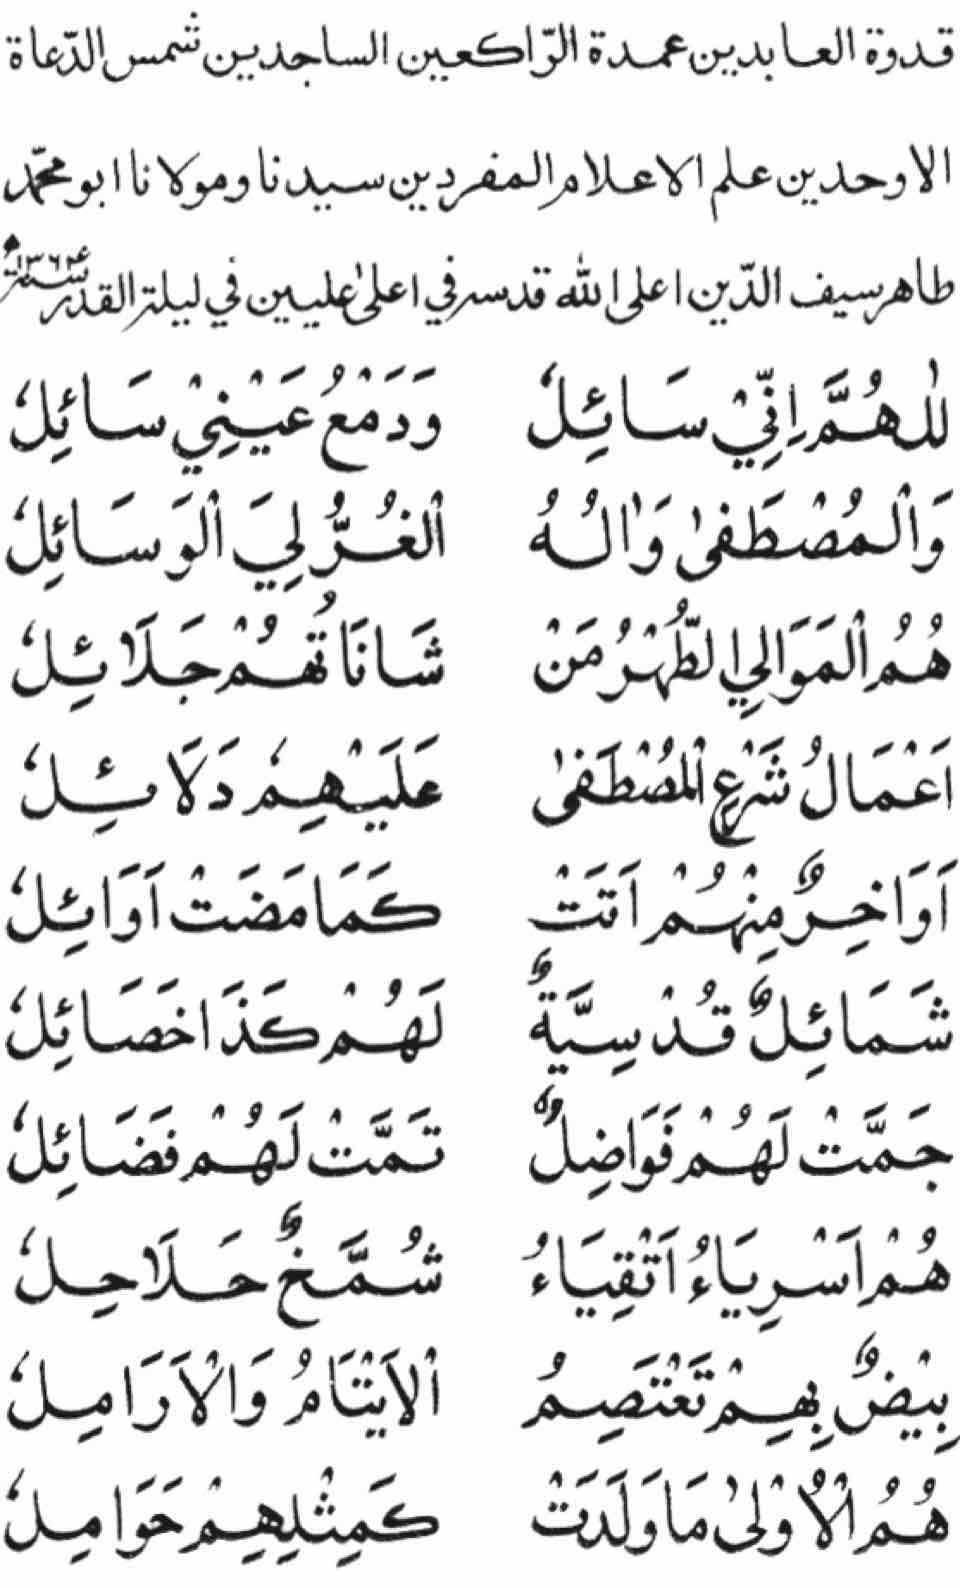 قدوة العابدين عمدة الرّاكعين الساجدين شمس الدّعاة
الاوحدين علم الاعلام المفردين سيدنا ومولانا ابو محمّد
طاهر سيف الدّين اعلى الله قدسه في اعلىٰ عليين في ليلة القدر سنة ١٣٦٢ه
للهُمَّ اِنِّيْ سَائِلٌ وَدَمْعُ عَيْنِيْ سَائِلٗ
وَالْمُصْطَفىٰ وَاٰلُهُ الْغُرُّ لِيَ الْوَسَائِلٗ
هُمُ الْمَوَالِي الطُّهْرُ مَنْ شَانَاتُهُمْ جَلَائِلٗ
اَعْمَالُ شَرْعِ الْمُصْطَفىٰ عَلَيْهِمٗ دَلَائِلٗ
اَوَاخِرٌ مِنْهُمْ اَتَتْ كَمَا مَضَتْ اَوَائِلٗ
شَمَائِلٌ قُدْسِيَّةٌ لَهُمْ كَذَا خَصَائِلٗ
جَمَّتْ لَهُمْ فَوَاضِلٌ تَمَّتْ لَهُمْ فَضَائِلٗ
هُمْ اَسْرِيَاءُ اَتْقِيَاءُ شُمَّخٌ حَلَاحِلٗ
بِيْضٌ بِهِمْ تَعْتَصِمُ الْاَيْتَامُ وَالْاَرَامِلٗ
هُمُ الْاُوْلىٰ مَا وَلَدَتْ كَمِثْلِهِمْ حَوَامِلٗ